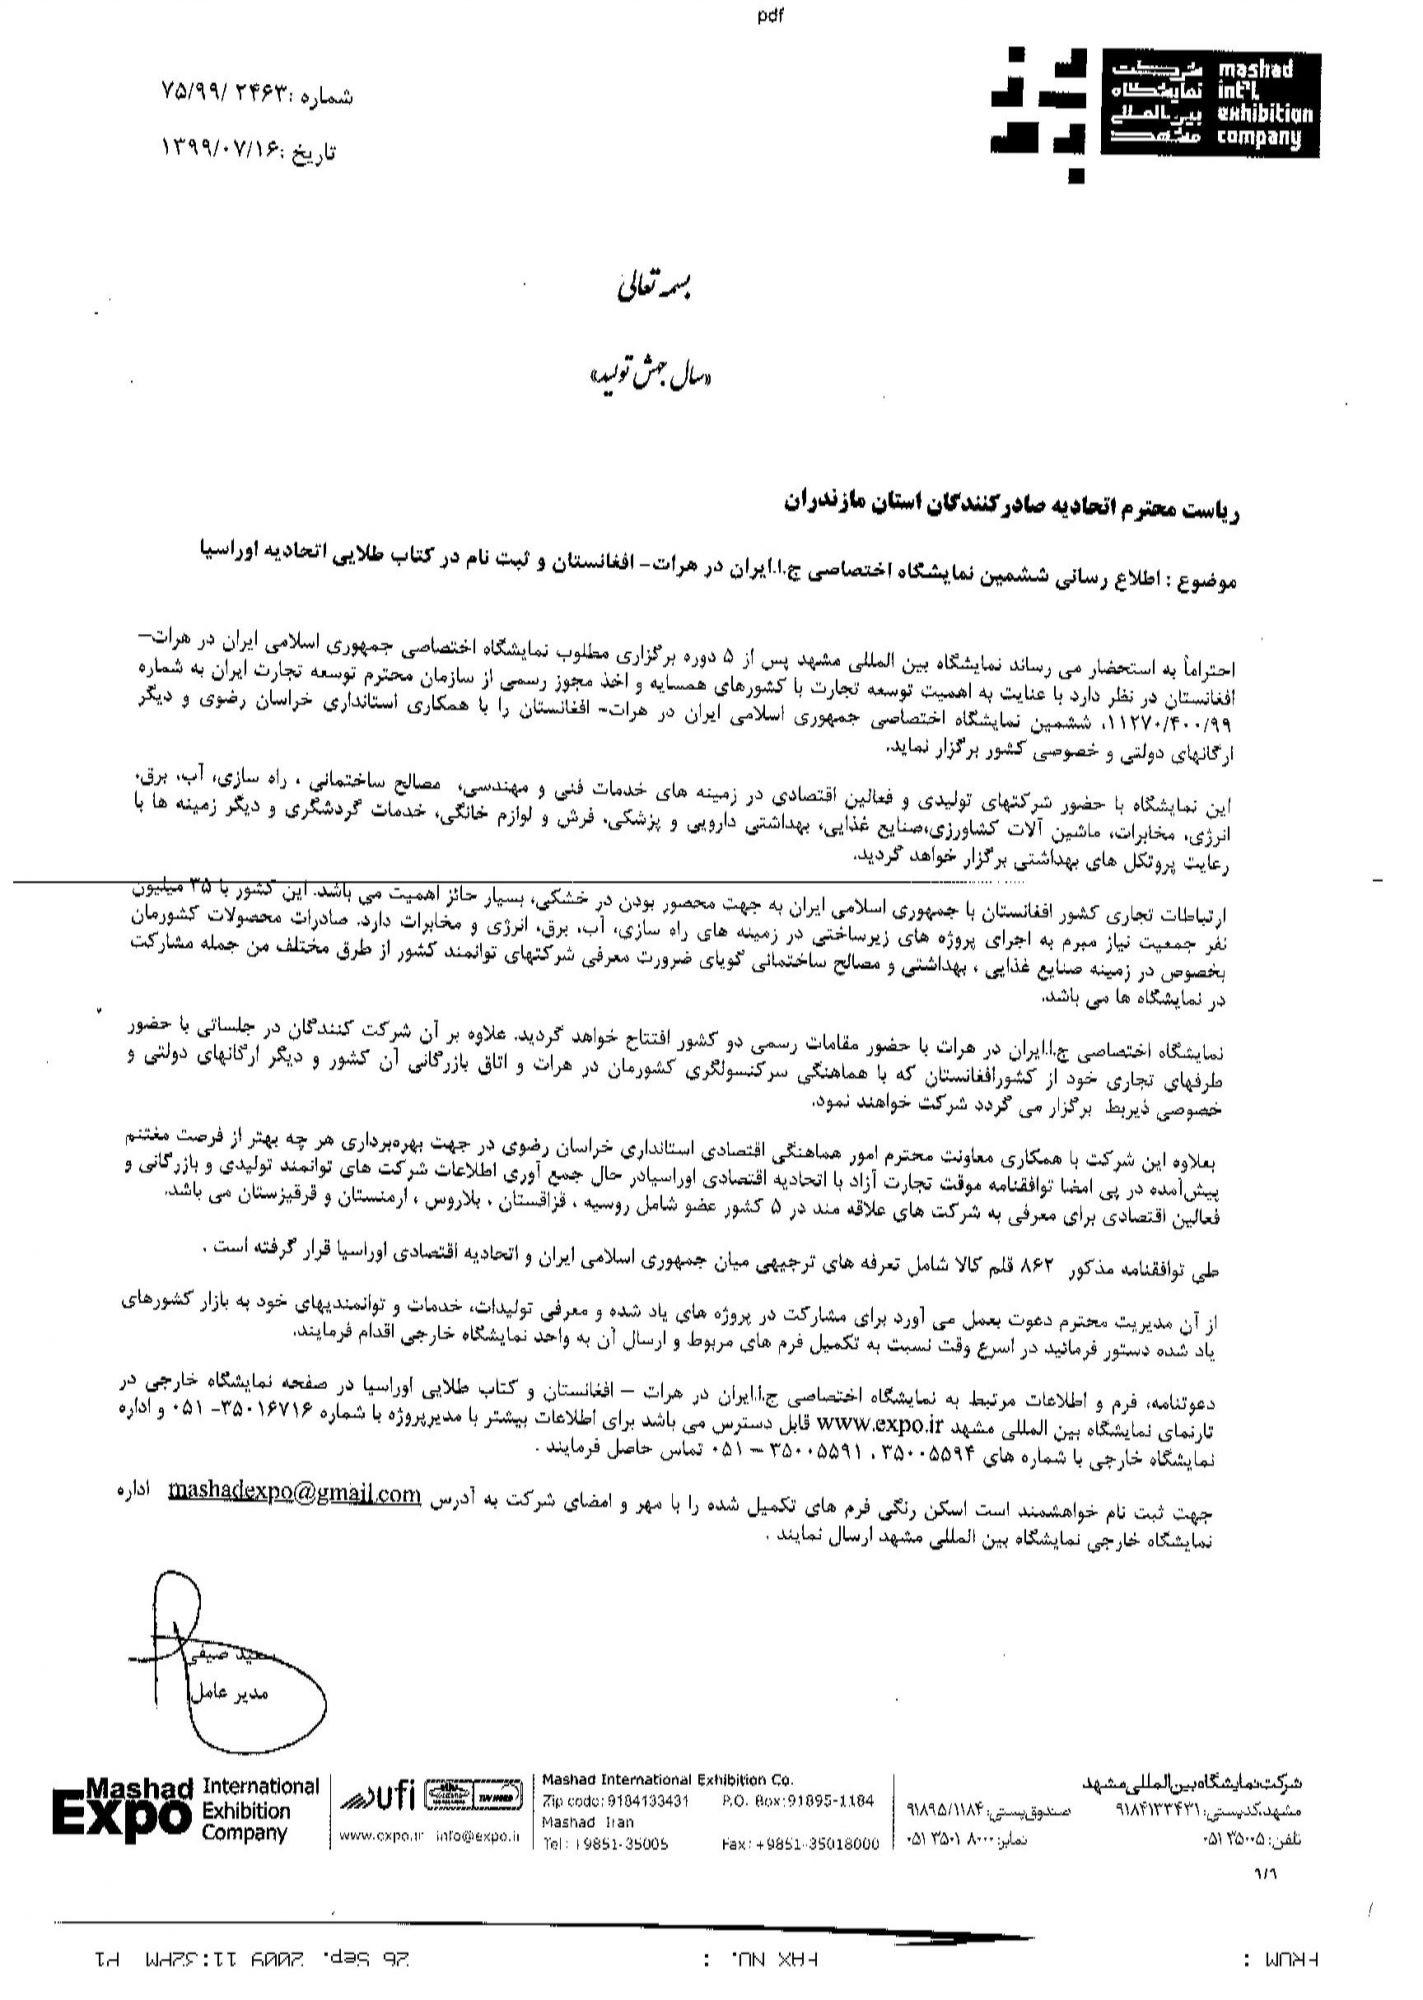 pdf
mashad
int'l
exhibition
company
شرکت
نمایشگاه
بین المللی
مشهد
شماره :۲۴۶۳ /۷۵/۹۹
تاریخ :۱۳۹۹/۰۷/۱۶
بسمه تعالی
«سال جهش تولید»
ریاست محترم اتحادیه صادرکنندگان استان مازندران
موضوع : اطلاع رسانی ششمین نمایشگاه اختصاصی ج.ا.ایران در هرات- افغانستان و ثبت نام در کتاب طلایی اتحادیه اوراسیا
احتراماً به استحضار می رساند نمایشگاه بین المللی مشهد پس از ۵ دوره برگزاری مطلوب نمایشگاه اختصاصی جمهوری اسلامی ایران در هرات-
افغانستان در نظر دارد با عنایت به اهمیت توسعه تجارت با کشورهای همسایه و اخذ مجوز رسمی از سازمان محترم توسعه تجارت ایران به شماره
۱۱۲۷۰/۴۰۰/۹۹، ششمین نمایشگاه اختصاصی جمهوری اسلامی ایران در هرات- افغانستان را با همکاری استانداری خراسان رضوی و دیگر
ارگانهای دولتی و خصوصی کشور برگزار نماید.
این نمایشگاه با حضور شرکتهای تولیدی و فعالین اقتصادی در زمینه های خدمات فنی و مهندسی، مصالح ساختمانی ، راه سازی، آب، برق،
انرژی، مخابرات، ماشین آلات کشاورزی،صنایع غذایی، بهداشتی دارویی و پزشکی، فرش و لوازم خانگی، خدمات گردشگری و دیگر زمینه ها با
رعایت پروتکل های بهداشتی برگزار خواهد گردید.
ارتباطات تجاری کشور افغانستان با جمهوری اسلامی ایران به جهت محصور بودن در خشکی، بسیار حائز اهمیت می باشد. این کشور با ۳۵ میلیون
نفر جمعیت نیاز مبرم به اجرای پروژه های زیرساختی در زمینه های راه سازی، آب، برق، انرژی و مخابرات دارد. صادرات محصولات کشورمان
بخصوص در زمینه صنایع غذایی ، بهداشتی و مصالح ساختمانی گویای ضرورت معرفی شرکتهای توانمند کشور از طرق مختلف من جمله مشارکت
در نمایشگاه ها می باشد.
نمایشگاه اختصاصی ج.ا.ایران در هرات با حضور مقامات رسمی دو کشور افتتاح خواهد گردید. علاوه بر آن شرکت کنندگان در جلساتی با حضور
طرفهای تجاری خود از کشورافغانستان که با هماهنگی سرکنسولگری کشورمان در هرات و اتاق بازرگانی آن کشور و دیگر ارگانهای دولتی و
خصوصی ذیربط برگزار می گردد شرکت خواهند نمود.
بعلاوه این شرکت با همکاری معاونت محترم امور هماهنگی اقتصادی استانداری خراسان رضوی در جهت بهره‌برداری هر چه بهتر از فرصت مغتنم
پیش‌آمده در پی امضا توافقنامه موقت تجارت آزاد با اتحادیه اقتصادی اوراسیادر حال جمع آوری اطلاعات شرکت های توانمند تولیدی و بازرگانی و
فعالین اقتصادی برای معرفی به شرکت های علاقه مند در ۵ کشور عضو شامل روسیه ، قزاقستان ، بلاروس ، ارمنستان و قرقیزستان می باشد.
طی توافقنامه مذکور ۸۶۲ قلم کالا شامل تعرفه های ترجیهی میان جمهوری اسلامی ایران و اتحادیه اقتصادی اوراسیا قرار گرفته است .
از آن مدیریت محترم دعوت بعمل می آورد برای مشارکت در پروژه های یاد شده و معرفی تولیدات، خدمات و توانمندیهای خود به بازار کشورهای
یاد شده دستور فرمائید در اسرع وقت نسبت به تکمیل فرم های مربوط و ارسال آن به واحد نمایشگاه خارجی اقدام فرمایند.
دعوتنامه، فرم و اطلاعات مرتبط به نمایشگاه اختصاصی ج.ا.ایران در هرات – افغانستان و کتاب طلایی اوراسیا در صفحه نمایشگاه خارجی در
تارنمای نمایشگاه بین المللی مشهد www.expo.ir قابل دسترس می باشد برای اطلاعات بیشتر با مدیرپروژه با شماره ۳۵۰۱۶۷۱۶- ۰۵۱ و اداره
نمایشگاه خارجی با شماره های ۳۵۰۰۵۵۹۴ ، ۳۵۰۰۵۵۹۱ – ۰۵۱ تماس حاصل فرمایند .
جهت ثبت نام خواهشمند است اسکن رنگی فرم های تکمیل شده را با مهر و امضای شرکت به آدرس mashadexpo@gmail.com اداره
نمایشگاه خارجی نمایشگاه بین المللی مشهد ارسال نمایند .
سعید صیفی
مدیر عامل
Mashad Expo International Exhibition Company
ufi
TUV NORD
www.expo.ir info@expo.ir
Mashad International Exhibition Co.
Zip code: 9184133431 P.O. Box:91895-1184
Mashad Iran
Tel: +9851-35005 Fax: +9851-35018000
شرکت نمایشگاه بین المللی مشهد
مشهد،کدپستی: ۹۱۸۴۱۳۳۴۳۱ صندوق پستی: ۹۱۸۹۵/۱۱۸۴
تلفن: ۰۵۱۳۵۰۰۵ نمابر: ۰۵۱۳۵۰۱۸۰۰۰
۱/۱
FROM : FAX NO. : 26 Sep. 2009 11:32PM P1